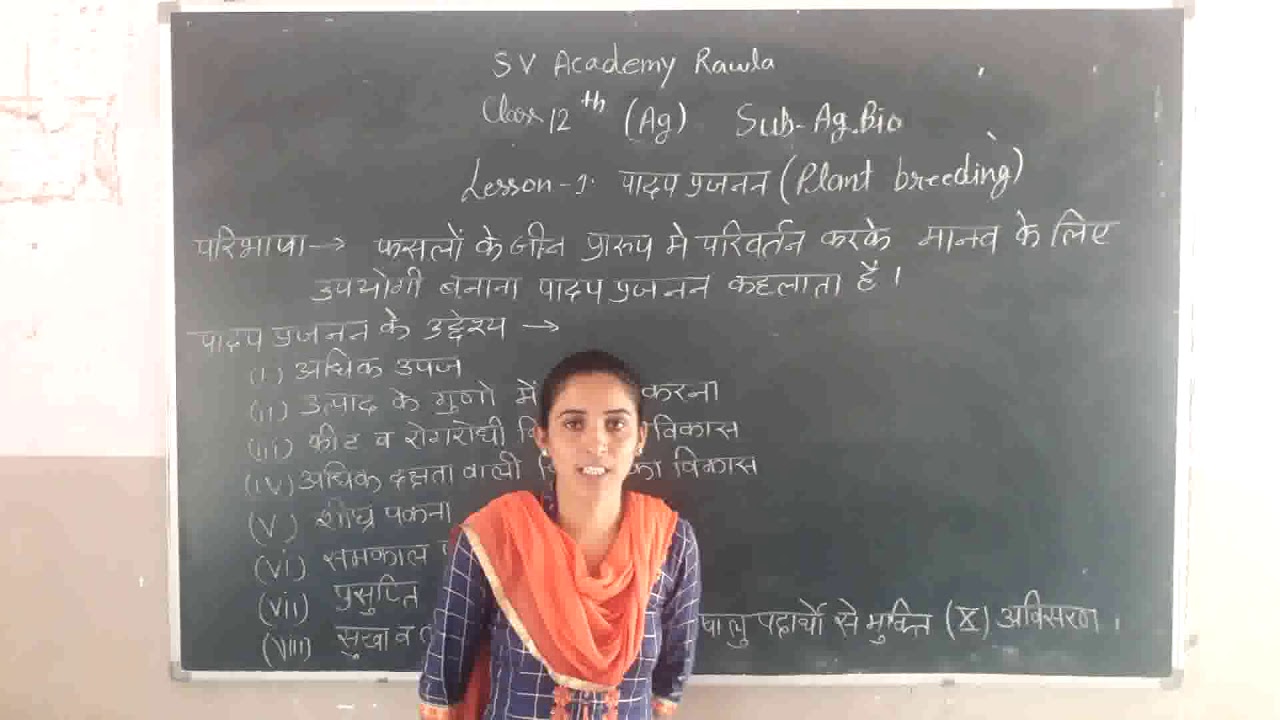 SV Academy Rawla
Class 12th (Ag) Sub- Ag.Bio
Lesson-1. पादप प्रजनन (Plant breeding)
परिभाषा → फसलों के जीन प्रारुप मे परिवर्तन करके मानव के लिए
उपयोगी बनाना पादप प्रजनन कहलाता है।
पादप प्रजनन के उद्देश्य →
(i) अधिक उपज
(ii) उत्पाद के गुणो में करना
(iii) कीट व रोगरोधी विकास
(iv) अधिक दक्षता वाली का विकास
(v) शीघ्र पकना
(vi) समकाल
(vii) प्रसुप्ति
(viii) सुखा व पदार्थो से मुक्ति (X) अविसरण।